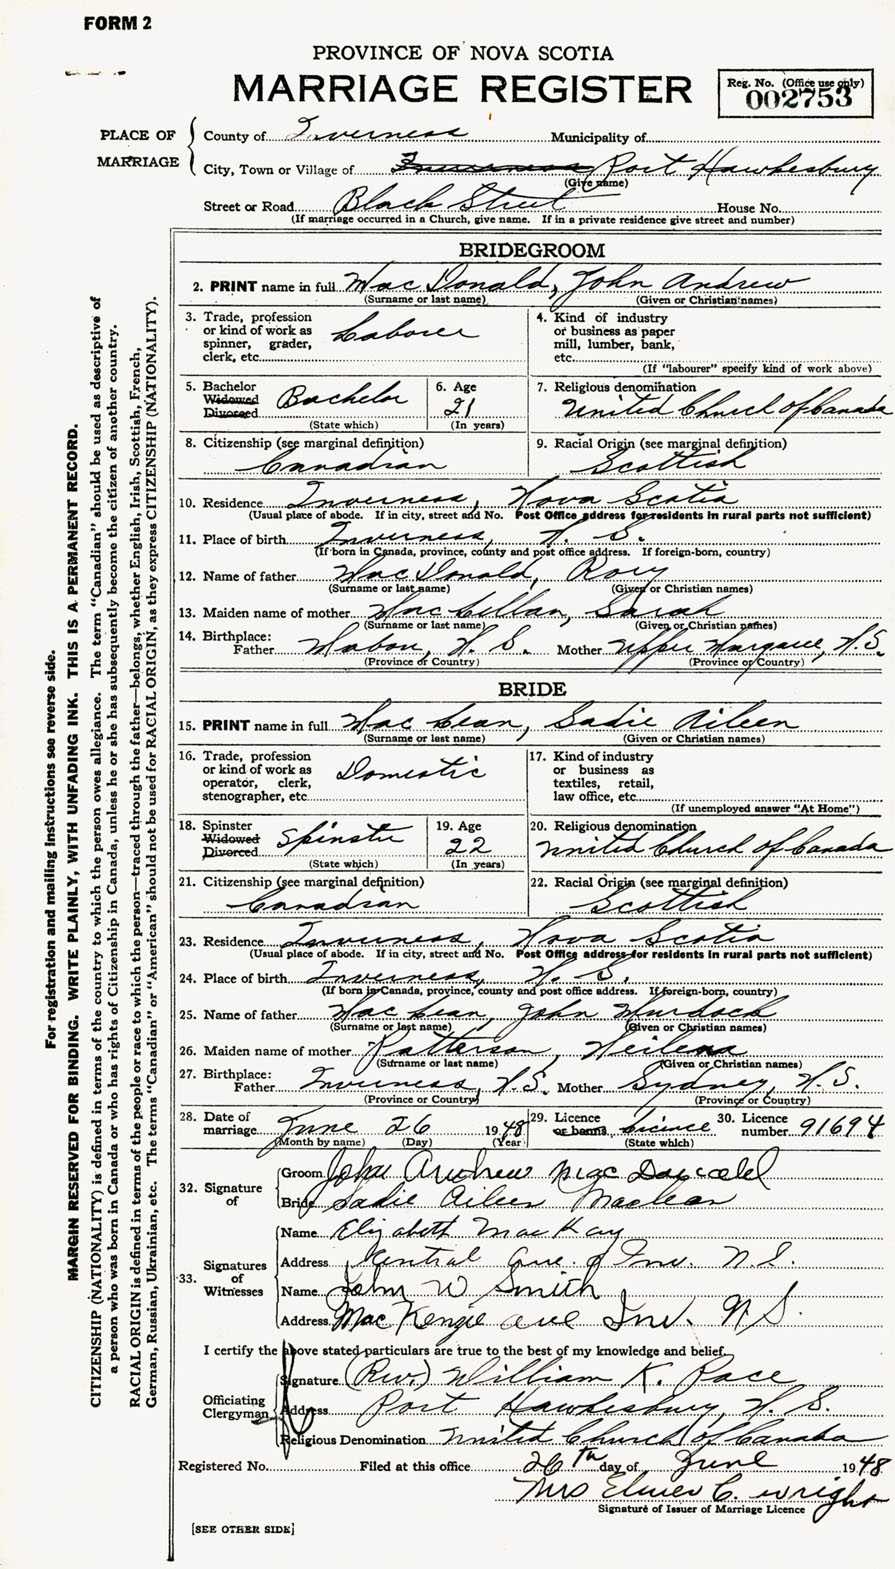 FORM 2
PROVINCE OF NOVA SCOTIA
MARRIAGE REGISTER
Reg. No. (Office use only)
002753
PLACE OF MARRIAGE
County of Inverness Municipality of
City, Town or Village of Inverness Port Hawkesbury
(Give name)
Street or Road Black Street House No.
(If marriage occurred in a Church, give name. If in a private residence give street and number)
BRIDEGROOM
2. PRINT name in full MacDonald, John Andrew
(Surname or last name) (Given or Christian names)
3. Trade, profession or kind of work as spinner, grader, clerk, etc. Laborer
4. Kind of industry or business as paper mill, lumber, bank, etc.
(If "labourer" specify kind of work above)
5. Bachelor Widowed Divorced Bachelor
(State which)
6. Age 21
(In years)
7. Religious denomination
United Church of Canada
8. Citizenship (see marginal definition)
Canadian
9. Racial Origin (see marginal definition)
Scottish
10. Residence Inverness, Nova Scotia
(Usual place of abode. If in city, street and No. Post Office address for residents in rural parts not sufficient)
11. Place of birth Inverness, N. S.
(If born in Canada, province, county and post office address. If foreign-born, country)
12. Name of father MacDonald, Rory
(Surname or last name) (Given or Christian names)
13. Maiden name of mother MacLellan, Sarah
(Surname or last name) (Given or Christian names)
14. Birthplace:
Father Mabou, N. S. Mother Upper Margaree, N.S.
(Province or Country) (Province or Country)
BRIDE
15. PRINT name in full MacLean, Sadie Aileen
(Surname or last name) (Given or Christian names)
16. Trade, profession or kind of work as operator, clerk, stenographer, etc. Domestic
17. Kind of industry or business as textiles, retail, law office, etc.
(If unemployed answer "At Home")
18. Spinster Widowed Divorced Spinster
(State which)
19. Age 22
(In years)
20. Religious denomination
United Church of Canada
21. Citizenship (see marginal definition)
Canadian
22. Racial Origin (see marginal definition)
Scottish
23. Residence Inverness, Nova Scotia
(Usual place of abode. If in city, street and No. Post Office address for residents in rural parts not sufficient)
24. Place of birth Inverness, N. S.
(If born in Canada, province, county and post office address. If foreign-born, country)
25. Name of father MacLean, John Murdock
(Surname or last name) (Given or Christian names)
26. Maiden name of mother Patterson, Neilena
(Surname or last name) (Given or Christian names)
27. Birthplace:
Father Inverness, N.S. Mother Sydney, N. S.
(Province or Country) (Province or Country)
28. Date of marriage June 26 1948
(Month by name) (Day) (Year)
29. Licence or banns licence
(State which)
30. Licence number 91694
32. Signature of
Groom John Andrew MacDonald
Bride Sadie Aileen MacLean
33. Signatures of Witnesses
Name Elizabeth MacKay
Address Central Ave Inv. N.S.
Name John W Smith
Address MacKenzie ave Inv. N.S.
I certify the above stated particulars are true to the best of my knowledge and belief.
Officiating Clergyman
Signature (Rev.) William K. Pace
Address Port Hawkesbury, N. S.
Religious Denomination United Church of Canada
Registered No. Filed at this office 26th day of June 1948
Mrs Elmer C. Wright
Signature of Issuer of Marriage Licence
[SEE OTHER SIDE]
For registration and mailing instructions see reverse side.
MARGIN RESERVED FOR BINDING. WRITE PLAINLY, WITH UNFADING INK. THIS IS A PERMANENT RECORD.
CITIZENSHIP (NATIONALITY) is defined in terms of the country to which the person owes allegiance. The term "Canadian" should be used as descriptive of
a person who was born in Canada or who has rights of Citizenship in Canada, unless he or she has subsequently become the citizen of another country.
RACIAL ORIGIN is defined in terms of the people or race to which the person—traced through the father—belongs, whether English, Irish, Scottish, French,
German, Russian, Ukrainian, etc. The terms "Canadian" or "American" should not be used for RACIAL ORIGIN, as they express CITIZENSHIP (NATIONALITY).